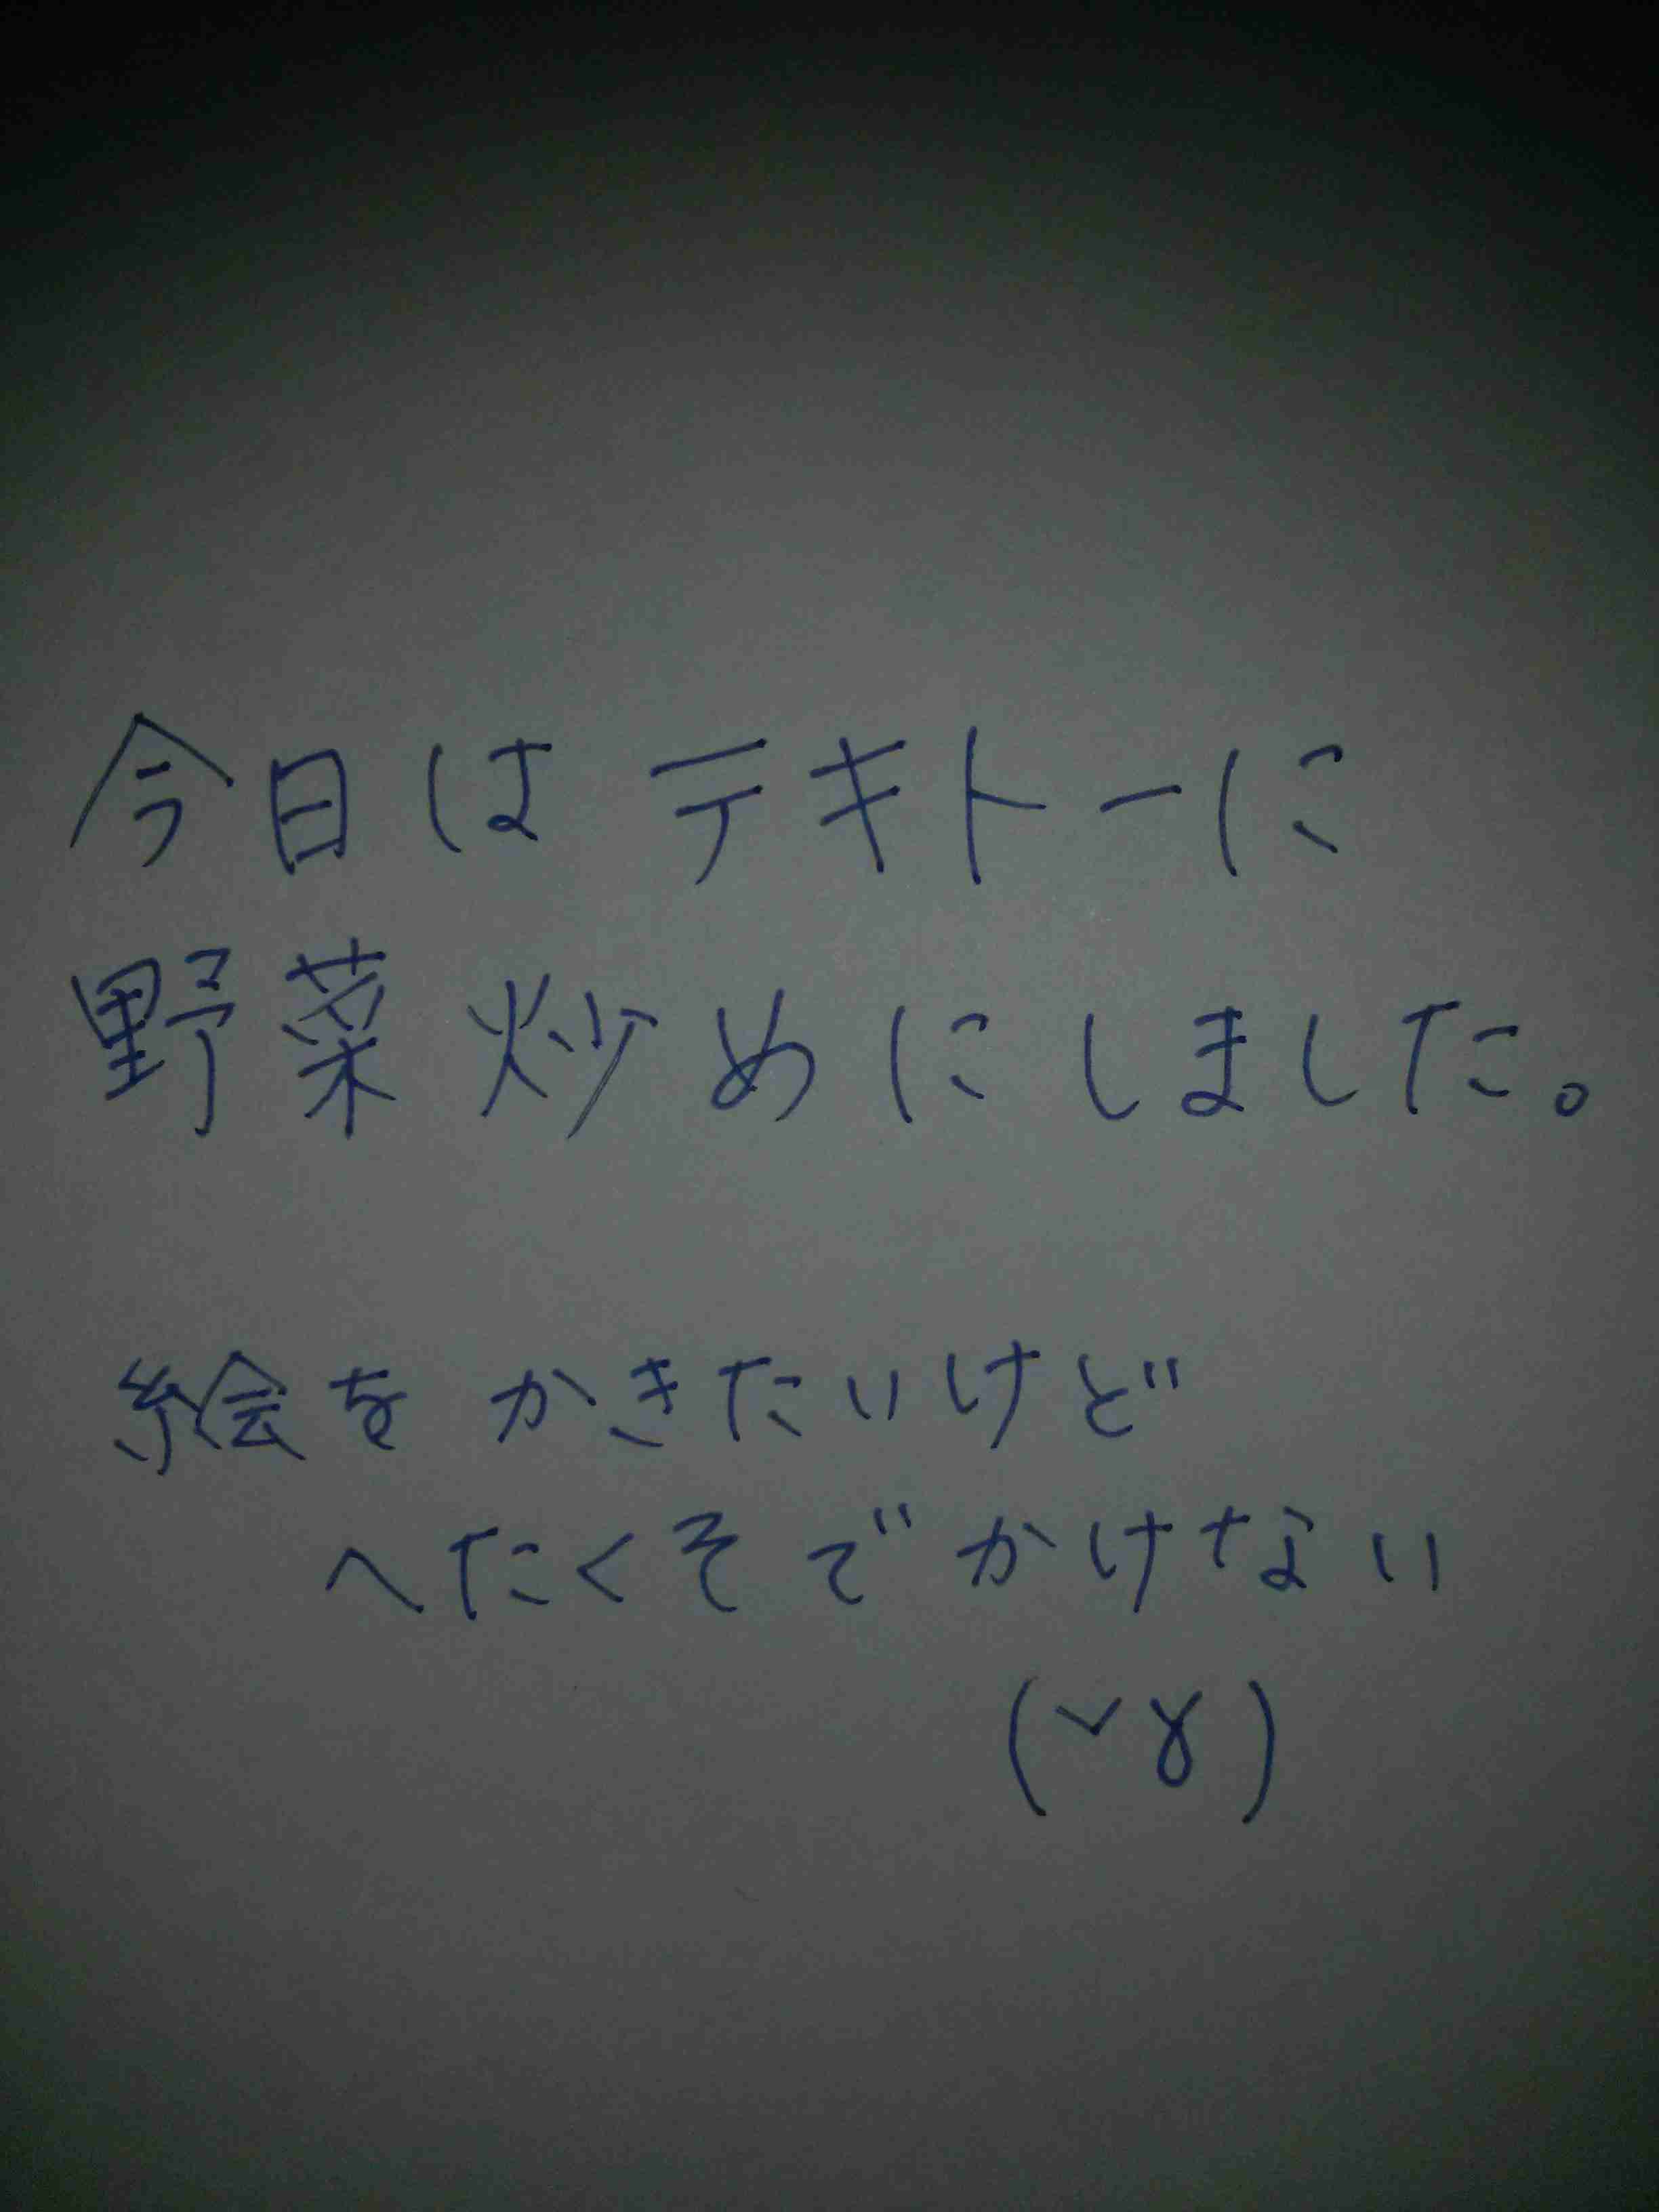 今日はテキトーに
野菜炒めにしました。
絵をかきたいけど
へたくそでかけない
(˅ɣ)